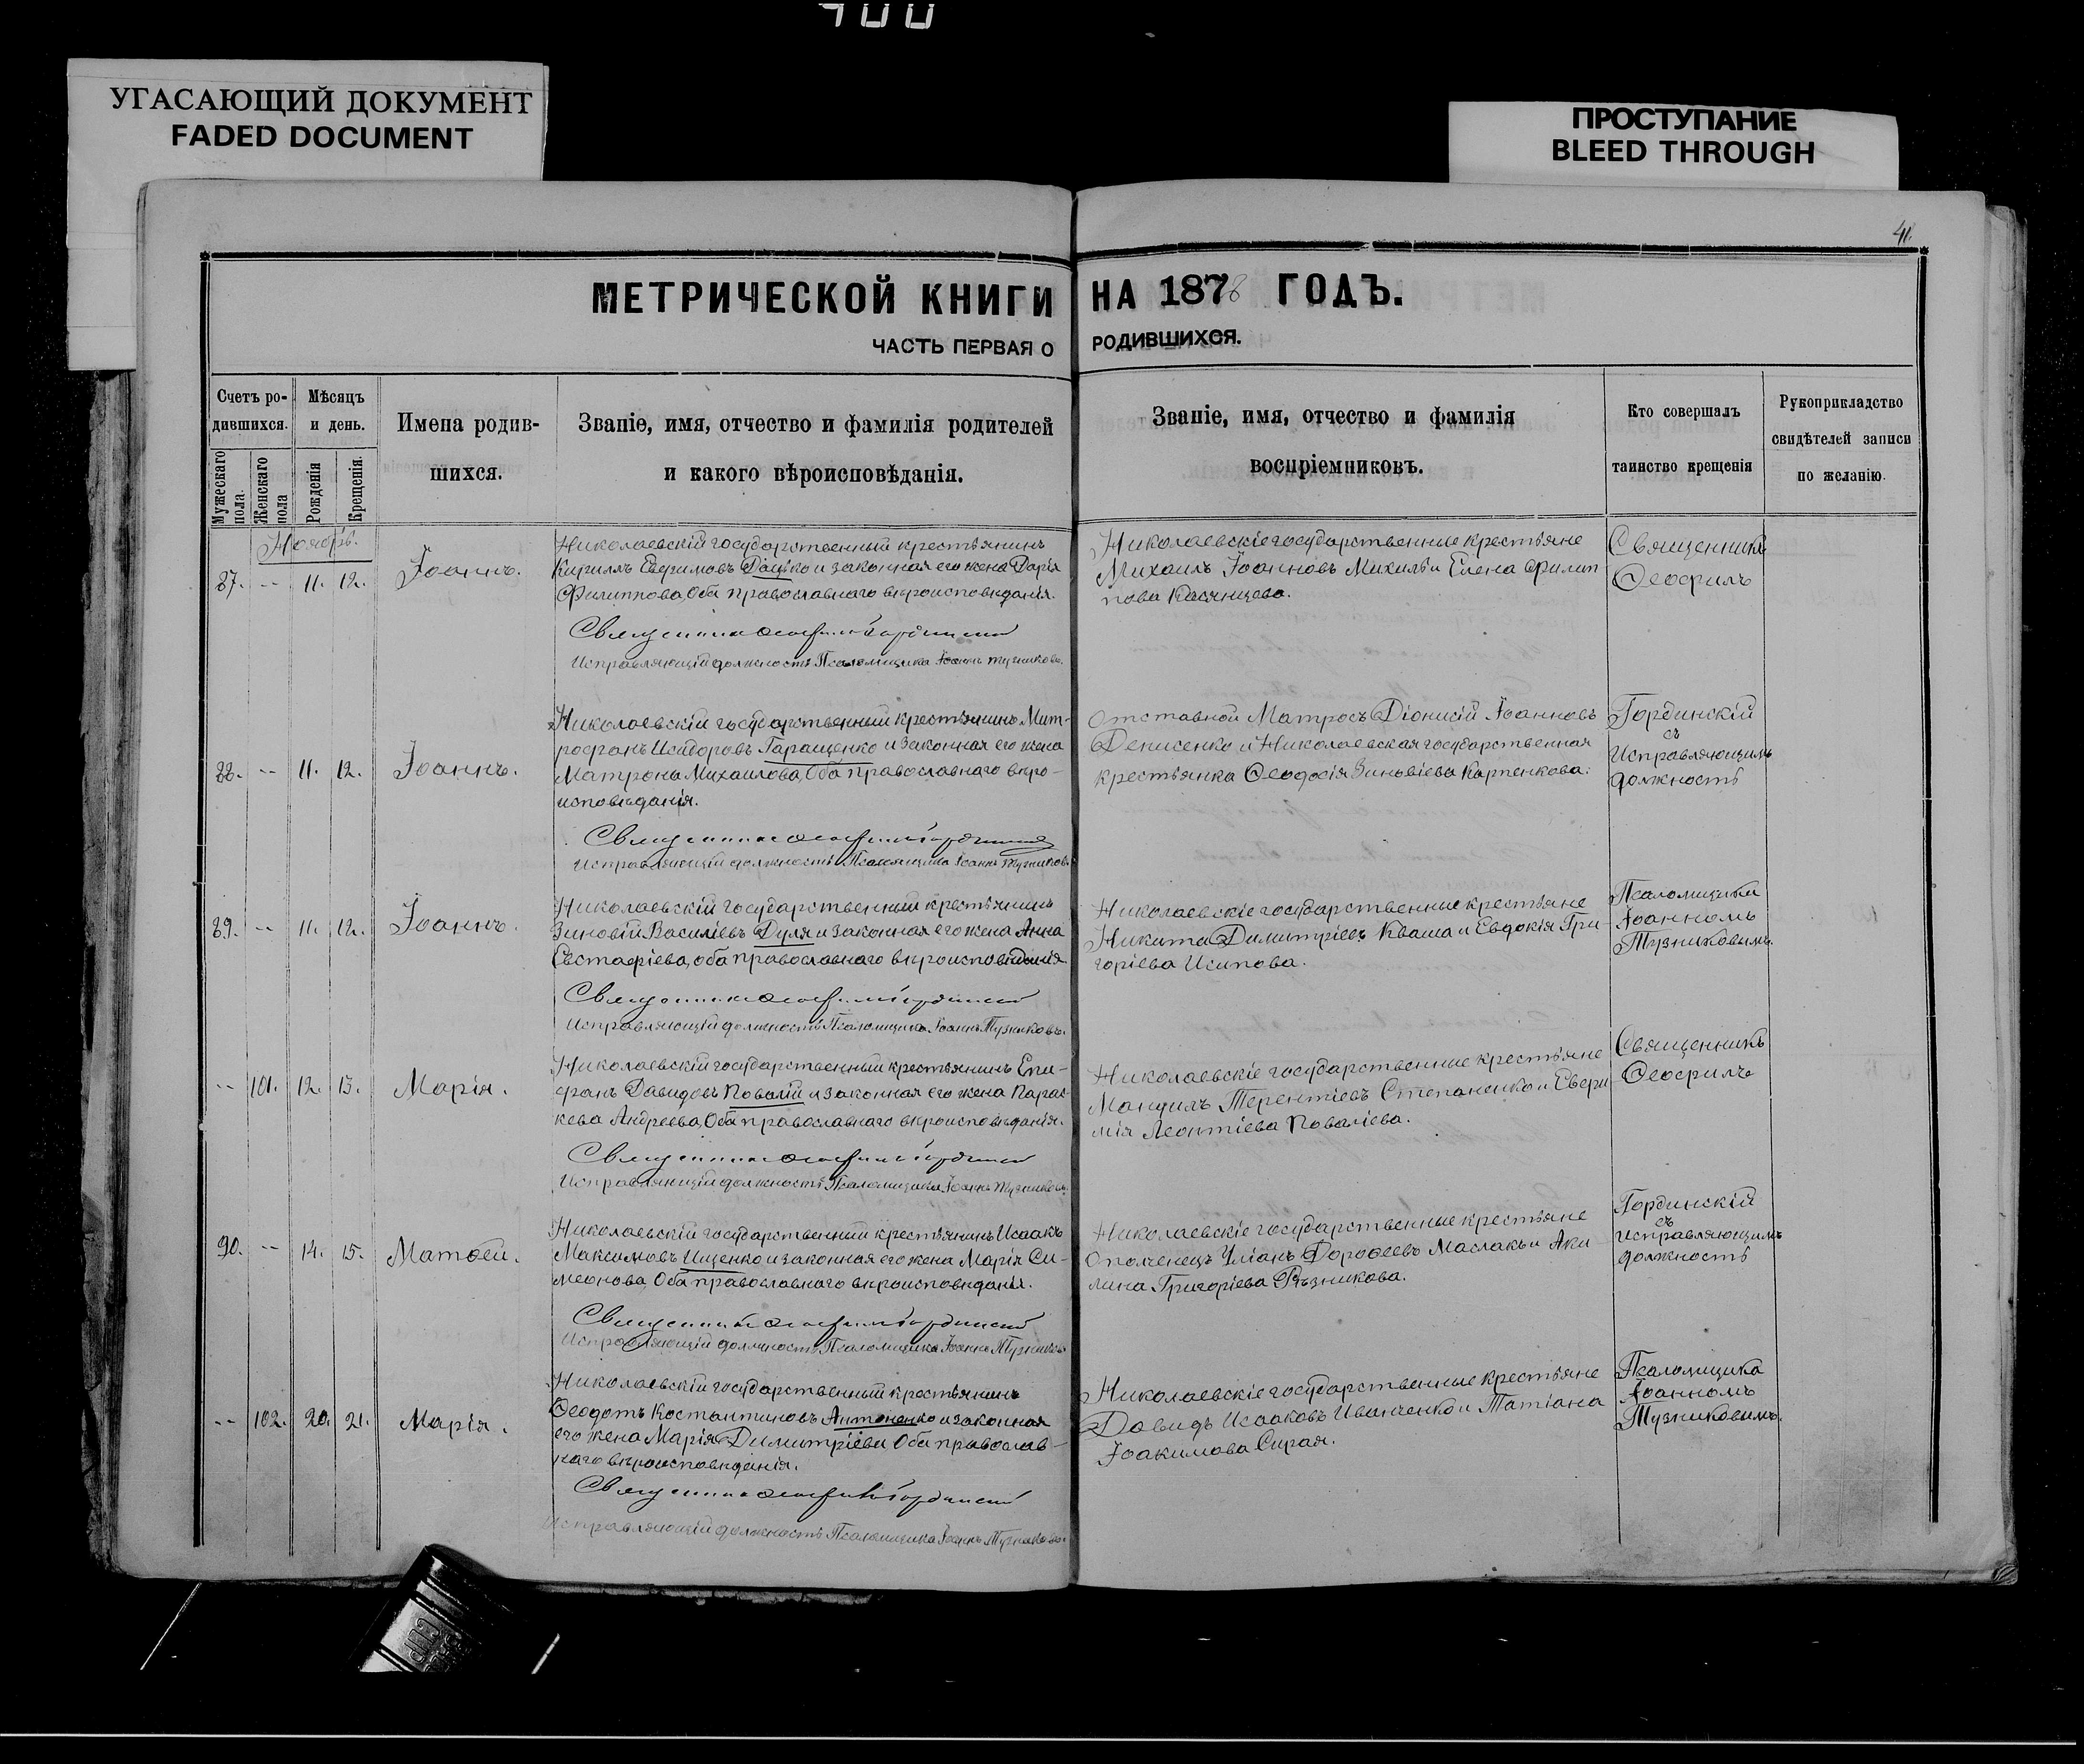 400
УГАСАЮЩИЙ ДОКУМЕНТ
FADED DOCUMENT
ПРОСТУПАНИЕ
BLEED THROUGH
41.
МЕТРИЧЕСКОЙ КНИГИ НА 1878 ГОДЪ.
ЧАСТЬ ПЕРВАЯ О РОДИВШИХСЯ.
Счетъ ро-
дившихся.
Мужескаго пола.
Женскаго пола
Мѣсяцъ
и день.
Рожденія
Крещенія.
Имена родив-
шихся.
Званіе, имя, отчество и фамилія родителей
и какого вѣроисповѣданія.
Званіе, имя, отчество и фамилія
воспріемниковъ.
Кто совершалъ
таинство крещенія
Рукоприкладство
свидѣтелей записи
по желанію.
Ноябрь.
87. -- 11. 12. Іоаннъ.
Николаевскій государственный крестьянинъ
Кириллъ Евфимовъ Дацько и законная его жена Дарія
Филиппова, Оба православнаго вѣроисповѣданія.
Священникъ Ѳеофилъ Гординскій
Исправляющій должность Псаломщика Іоаннъ Тузниковъ.
Николаевскіе государственные крестьяне
Михаилъ Іоанновъ и Елена Филип
пова
Священникъ
Ѳеофилъ
88. -- 11. 12. Іоаннъ.
Николаевскій государственный крестьянинъ Мит-
рофанъ Исидоровъ Гаращенко и законная его жена
Матрона Михаилова, Оба православнаго вѣро-
исповѣданія.
Священникъ Ѳеофилъ Гординскій
Исправляющій должность Псаломщика Іоаннъ Тузниковъ.
Отставной Матросъ Діонисій Іоанновъ
Денисенко и Николаевская государственная
крестьянка Ѳеодосія Зиновіева Карпенкова.
Гординскій
съ
Исправляющимъ
должность
89. -- 11. 12. Іоаннъ.
Николаевскій государственный крестьянинъ
Зиновій Василіевъ Дуля и законная его жена Анна
Евстафіева, оба православнаго вѣроисповѣданія.
Священникъ Ѳеофилъ Гординскій
Исправляющій должность Псаломщика Іоаннъ Тузниковъ.
Николаевскіе государственные крестьяне
Никита Димитріевъ Кваша и Евдокія Гри-
горіева Исипова.
Псаломщика
Іоанномъ
Тузниковымъ.
-- 101. 12. 13. Марія.
Николаевскій государственный крестьянинъ Епи-
фанъ Давидовъ Повалій и законная его жена Парас-
кева Андреева, Оба православнаго вѣроисповѣданія.
Священникъ Ѳеофилъ Гординскій
Исправляющій должность Псаломщика Іоаннъ Тузниковъ.
Николаевскіе государственные крестьяне
Мануилъ Терентіевъ Степаненко и Евфи
мія Леонтіева Поваліева.
Священникъ
Ѳеофилъ
90. -- 14. 15. Матѳей.
Николаевскій государственный крестьянинъ Исаакъ
Максимовъ Ищенко и законная его жена Марія Си-
меонова, Оба православнаго вѣроисповѣданія.
Священникъ Ѳеофилъ Гординскій
Исправляющій должность Псаломщика Іоаннъ Тузниковъ
Николаевскіе государственные крестьяне
Ополченецъ Уліанъ Дороѳеевъ Маслакъ и Аки
лина Григоріева Рѣзникова.
Гординскій
съ
исправляющимъ
должность
-- 102. 20. 21. Марія.
Николаевскій государственный крестьянинъ
Ѳеодотъ Костантиновъ Антоненко и законная
его жена Марія Димитріева Оба православ-
наго вѣроисповѣданія.
Священникъ Ѳеофилъ Гординскій
Исправляющій должность Псаломщика Іоаннъ Тузниковъ.
Николаевскіе государственные крестьяне
Давидъ Исааковъ Иванченко и Татіана
Іоакимова Сирая.
Псаломщика
Іоанномъ
Тузниковымъ.